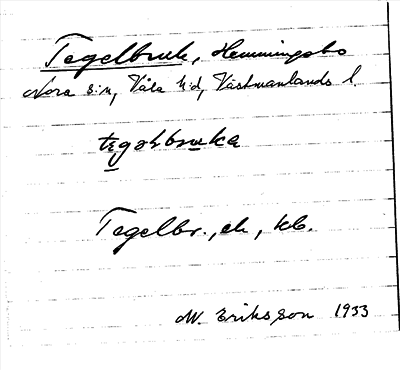 Tegelbruk, Hemmingsbo
Nora s:n, Våla h:d, Västmanlands l.
tegəlbruka
Tegelbr., ek, kb.
M. Eriksson 1933